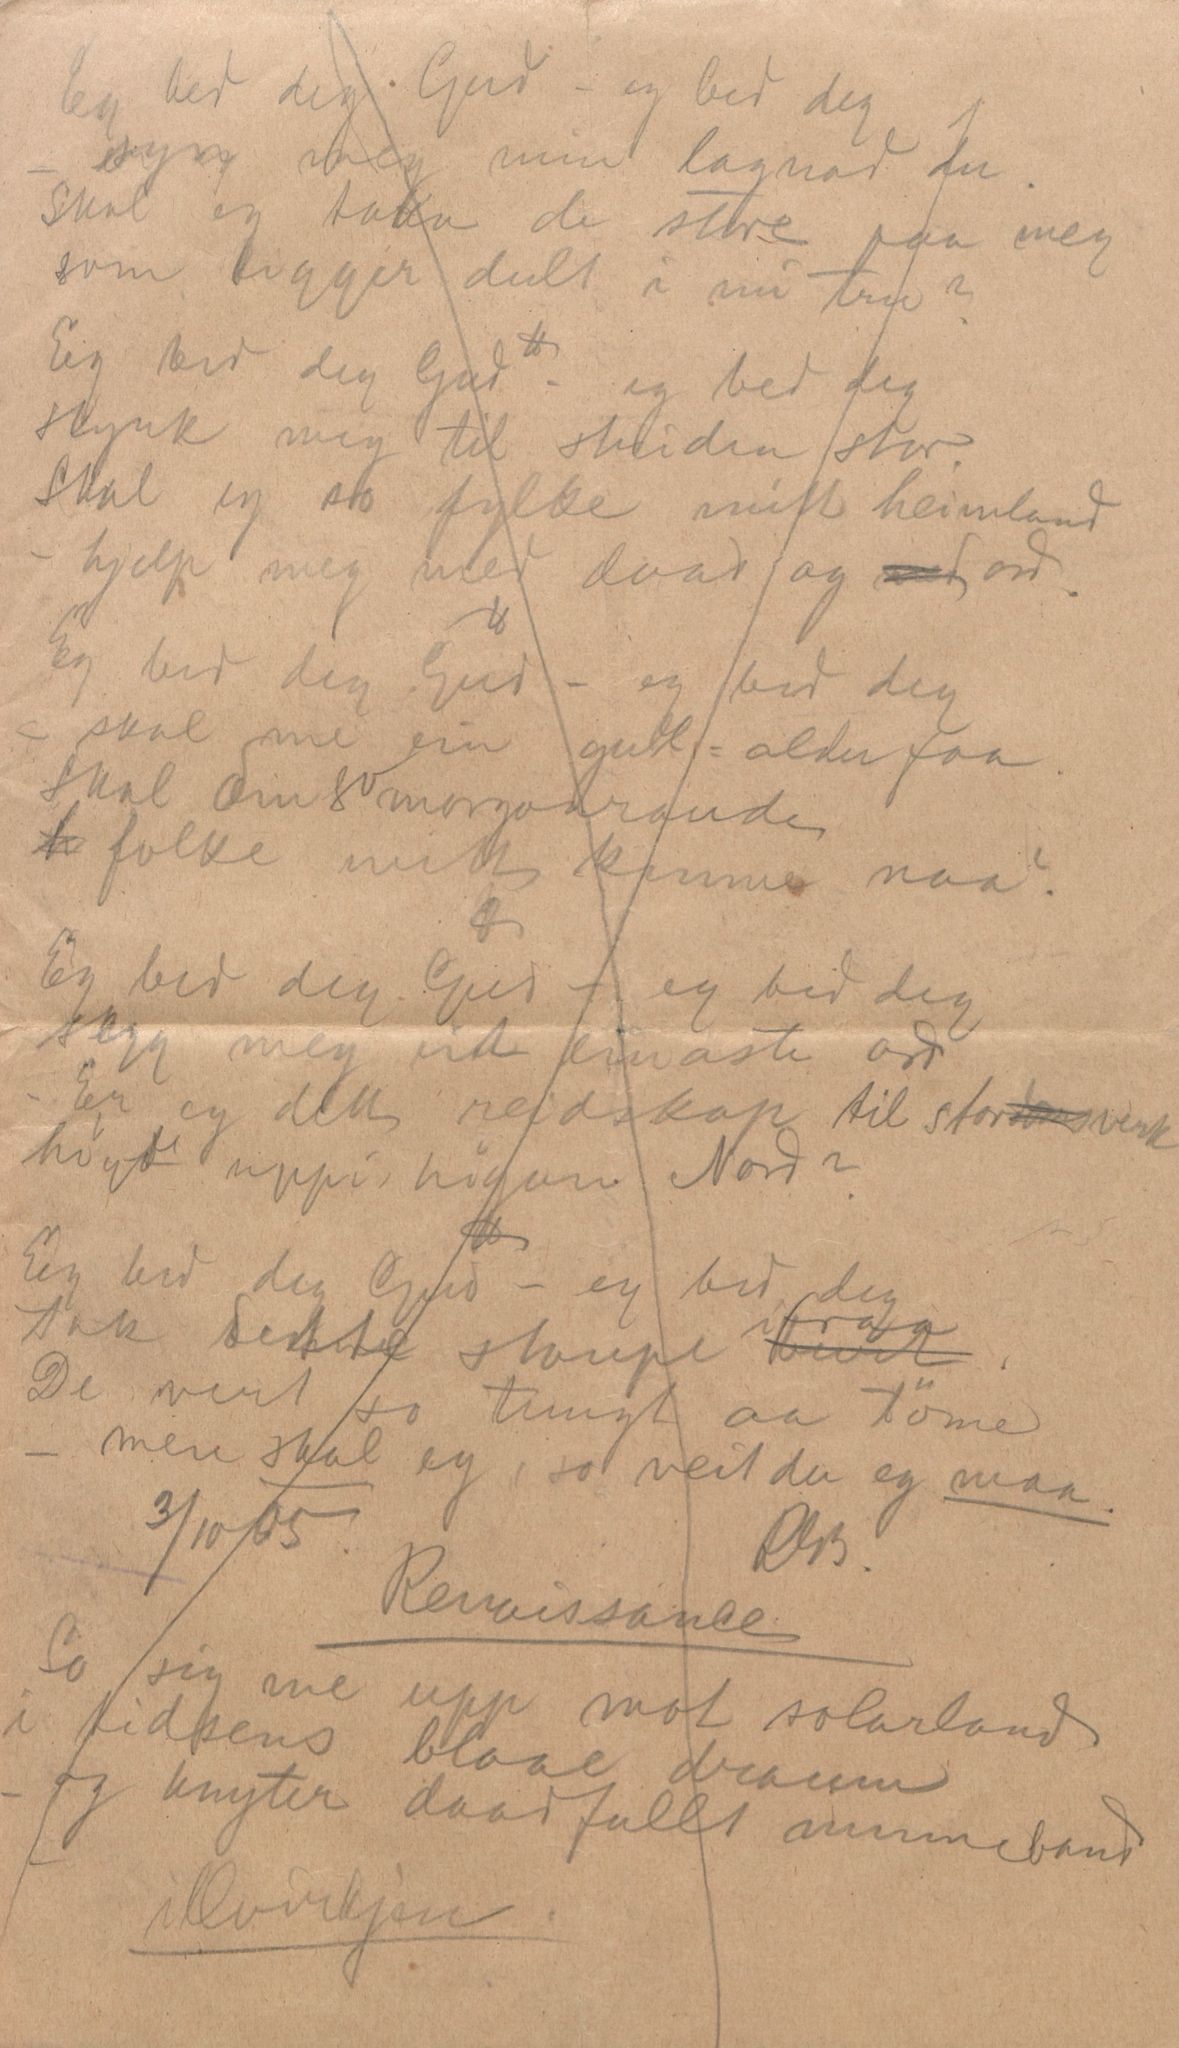 Eg bed deg Gud – eg bed deg
– syn meg min lagnad du.
Skal eg taka de store paa meg
som ligger dult i mi tru?
Eg bed deg Gud – eg bed deg
styrk meg til striden stor.
Skal eg so fylke mitt heimland
– hjelp meg med daad og ord.
Eg bed deg Gud – eg bed deg
– skal me ein gull-alder faa.
Skal den so morgonrande
folke mitt kunne naa?
Eg bed deg Gud – eg bed deg
segg meg eit einaste ord
– Er eg ditt reidskap til storverk
høgt uppi høgan Nord?
Eg bed deg Gud – eg bed deg
tak dette staupe ifraa.
De vert so tungt aa töme
– men skal eg, so veit du eg maa.
3/10 05.
Renaissance
So sig me upp mot solarland
i tidsens blaae draum
– og knyter daadfullt minneband